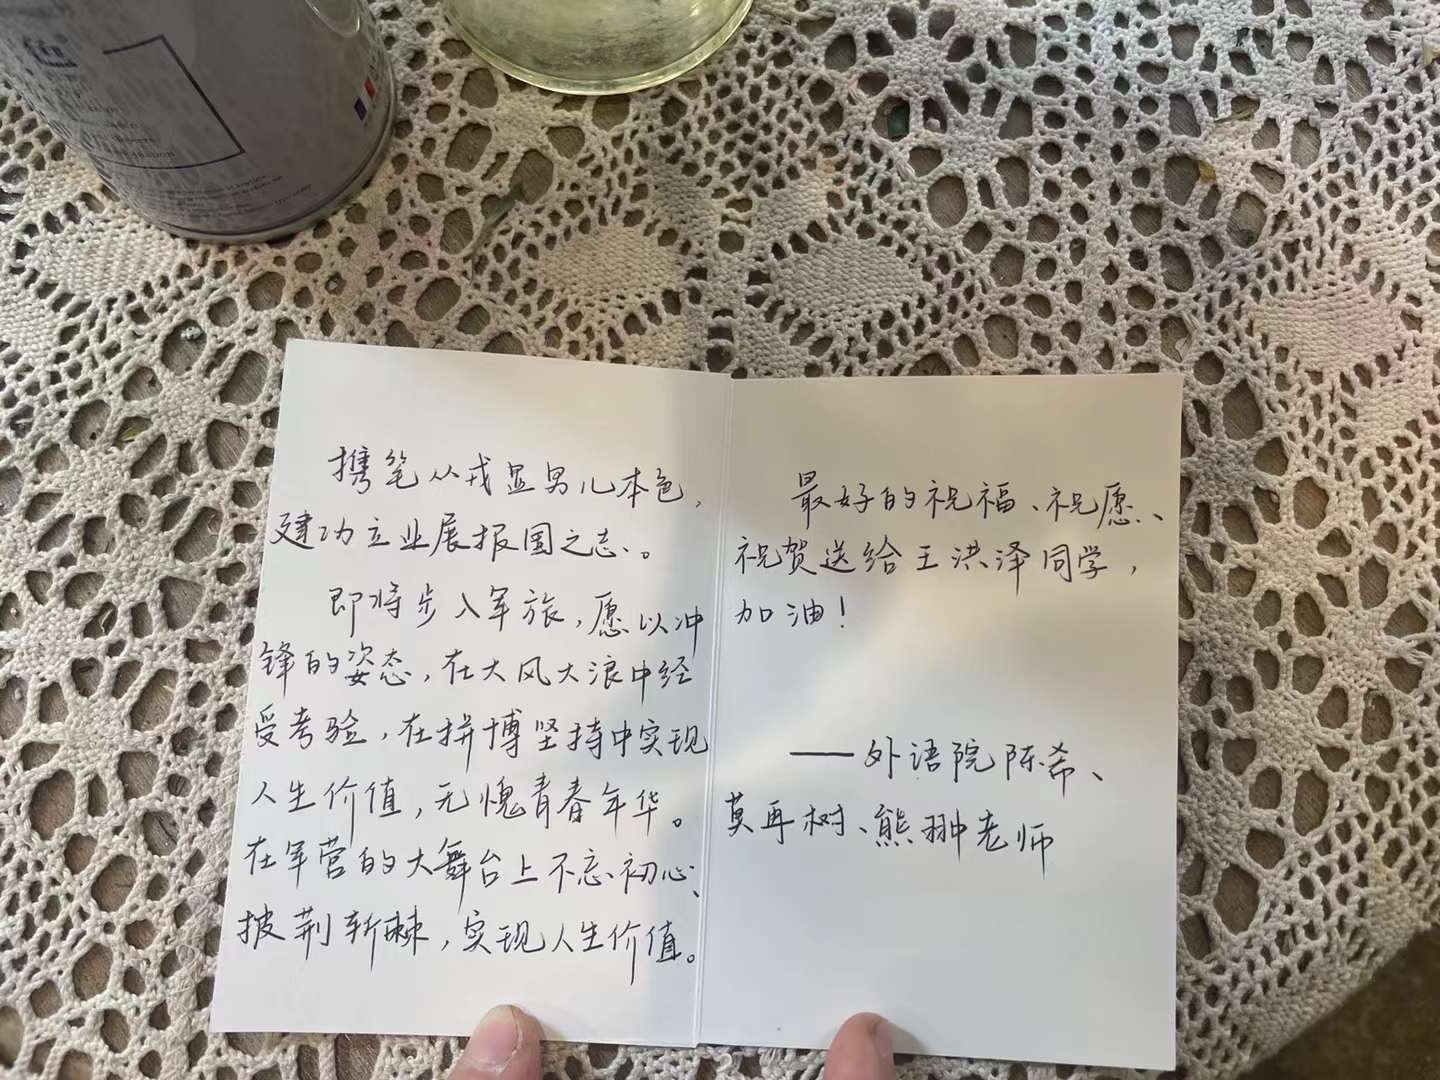 携笔从戎显男儿本色，
建功立业展报国之志。
即将步入军旅，愿以冲
锋的姿态，在大风大浪中经
受考验，在拼搏坚持中实现
人生价值，无愧青春年华。
在军营的大舞台上不忘初心、
披荆斩棘，实现人生价值。
最好的祝福、祝愿、
祝贺送给王洪泽同学，
加油！
——外语院陈希、
莫再树、熊翀老师